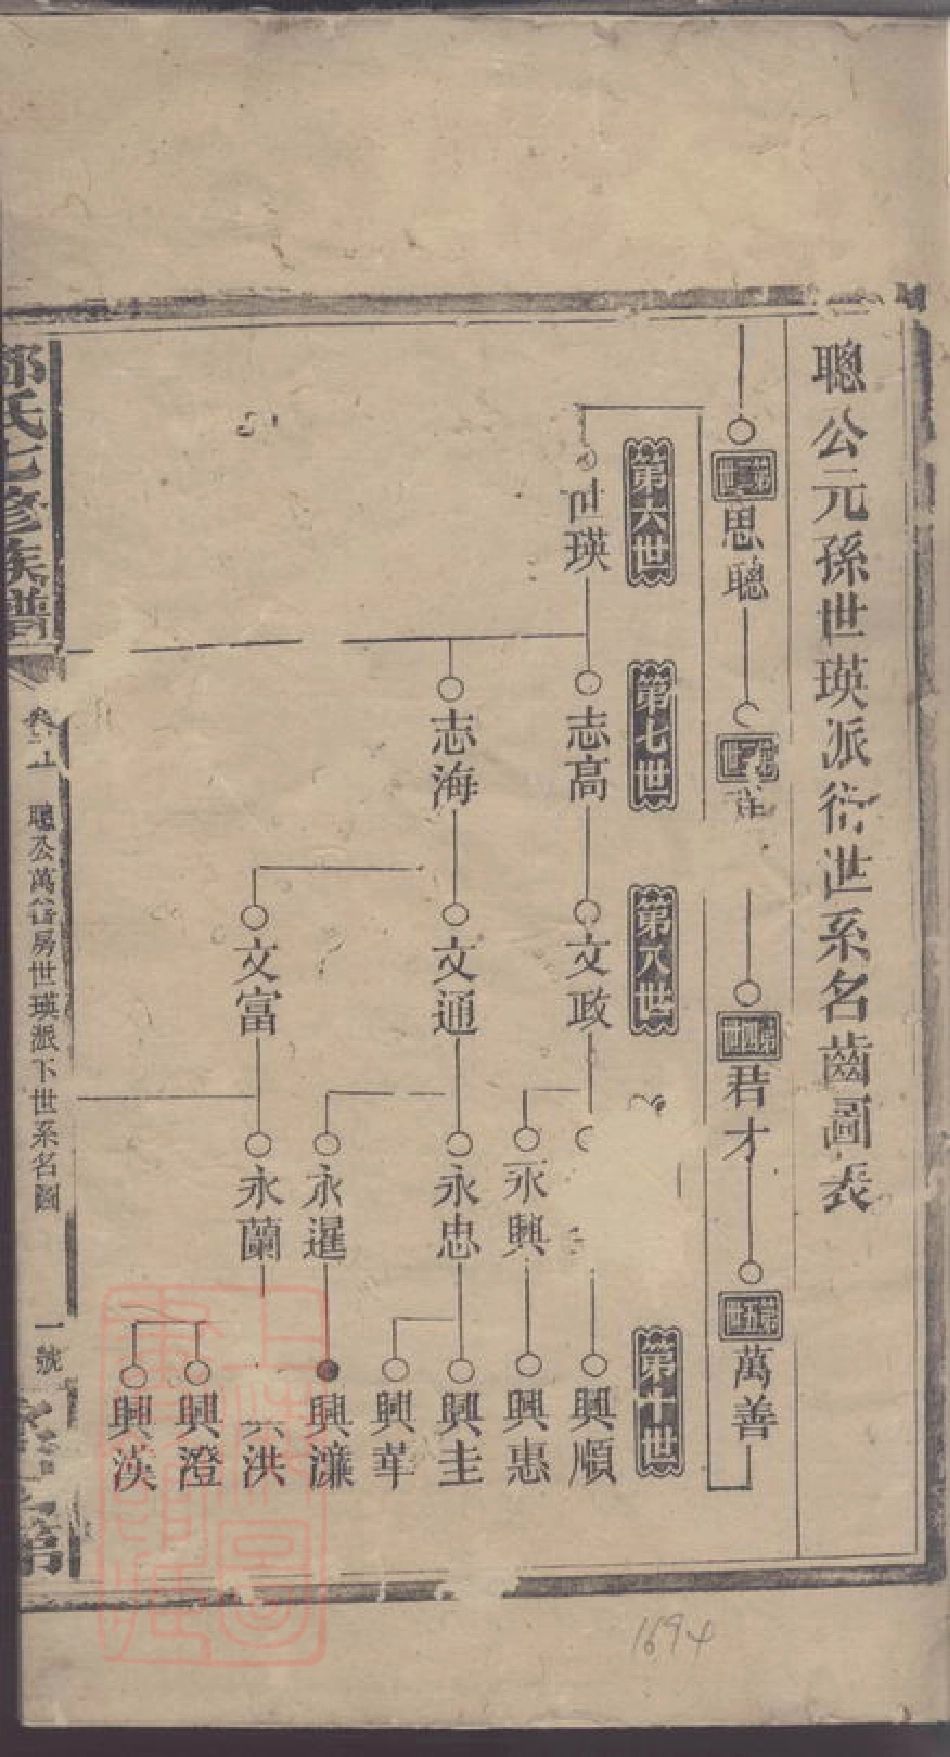 聰公元孫世瑛派衍世系名齒圖表
第二世
思聰
世
君才
第四世
萬善
第五世
第六世
第七世
第八世
第十世
世瑛
志高
文政
興順
永興
興惠
志海
文通
永忠
興圭
興華
永暹
興濂
文富
永蘭
洪
興澄
興渶
氏七修族譜
聰公萬善房世瑛派下世系名圖
一號
1694